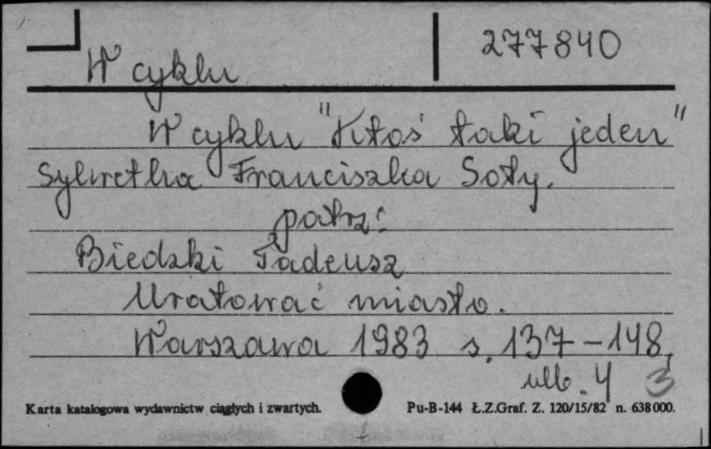 W cyklu
277840
W cyklu "Ktoś taki jeden"
Sylwetka Franciszka Soty.
patrz:
Biedzki Tadeusz
Uratować miasto.
Warszawa 1983 s. 137-148,
ulb. 4 3
Karta katalogowa wydawnictw ciągłych i zwartych.
Pu-B-144 Ł.Z.Graf. Z. 120/15/82 n. 638000.